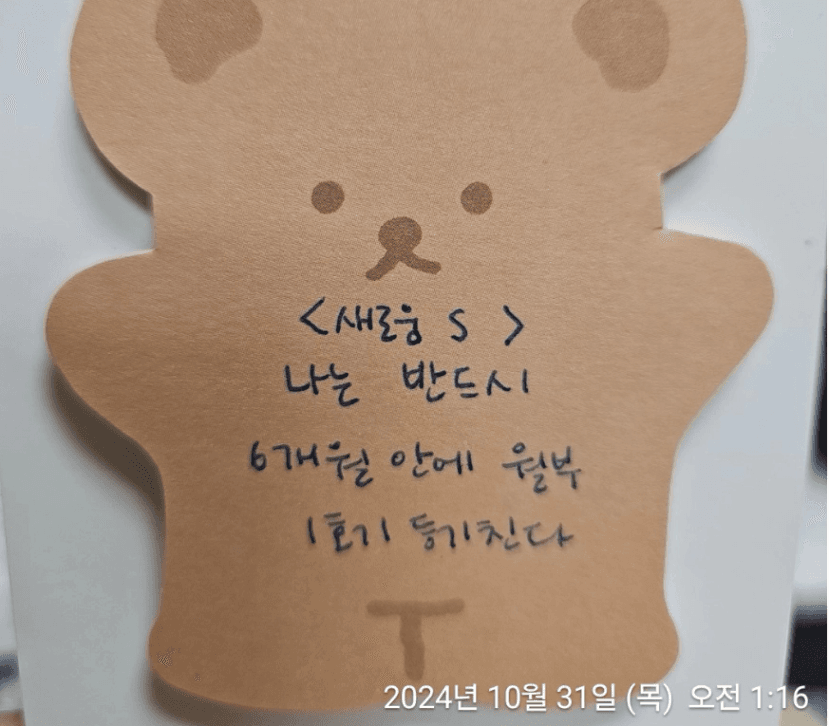 <새로움 S >
나는 반드시
6개월 안에 월부
1호기 등기친다
2024년 10월 31일 (목) 오전 1:16